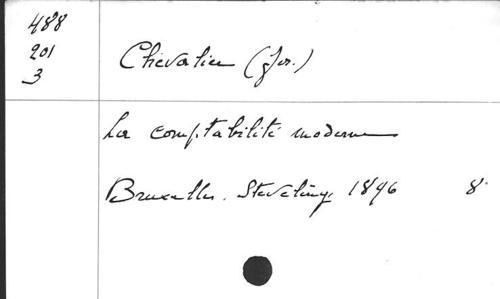 488
201
3
Chevalier (Jos.)
La comptabilité moderne
Bruxelles. Steveling, 1896 8°